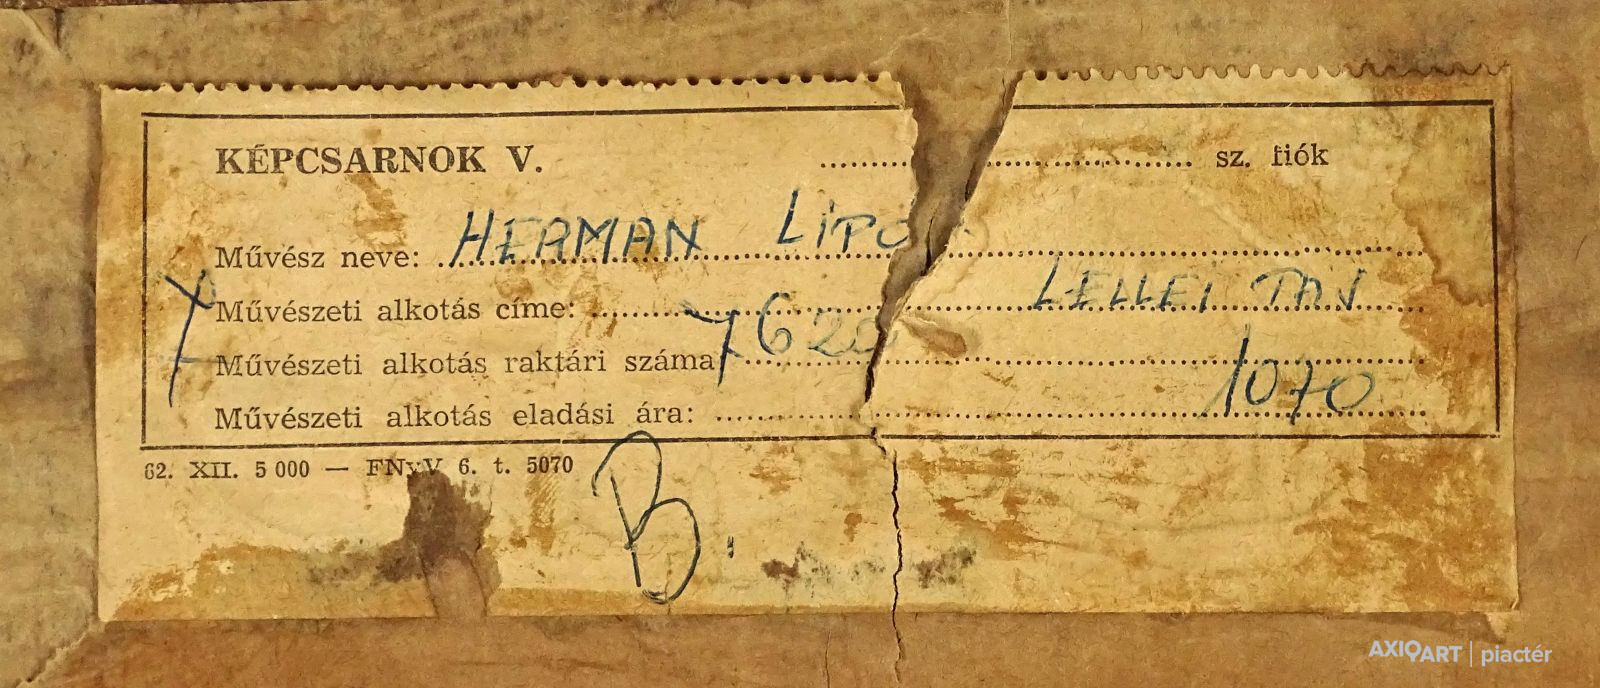 KÉPCSARNOK V. .................... sz. fiók
Művész neve: HERMAN LIPÓ
Művészeti alkotás címe: LELLEI TÁJ
Művészeti alkotás raktári száma 7620
Művészeti alkotás eladási ára: 1070
62. XII. 5 000 — FNyV 6. t. 5070
B.
AXIOART | piactér